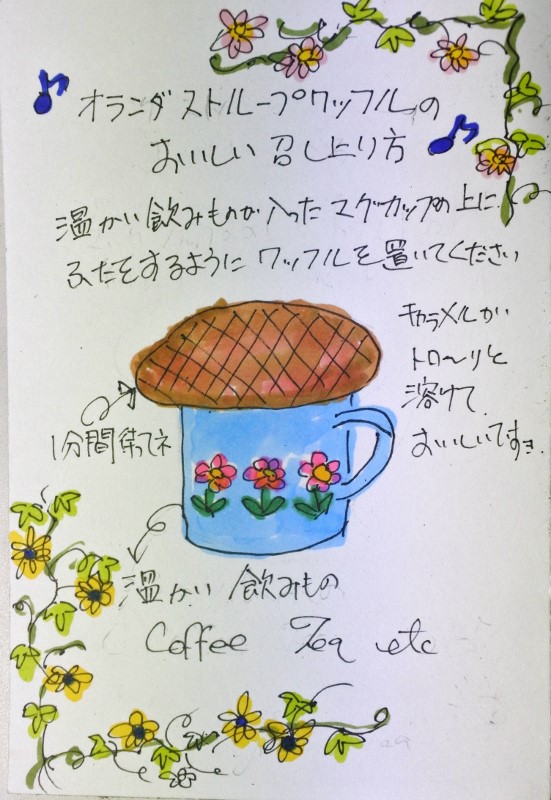 オランダストループワッフルの
おいしい召し上り方
温かい飲みものが入ったマグカップの上に
ふたをするようにワッフルを置いてください
キャラメルが
トロ〜リと
溶けて
おいしいです。
1分間待ってネ
温かい飲みもの
Coffee Tea etc